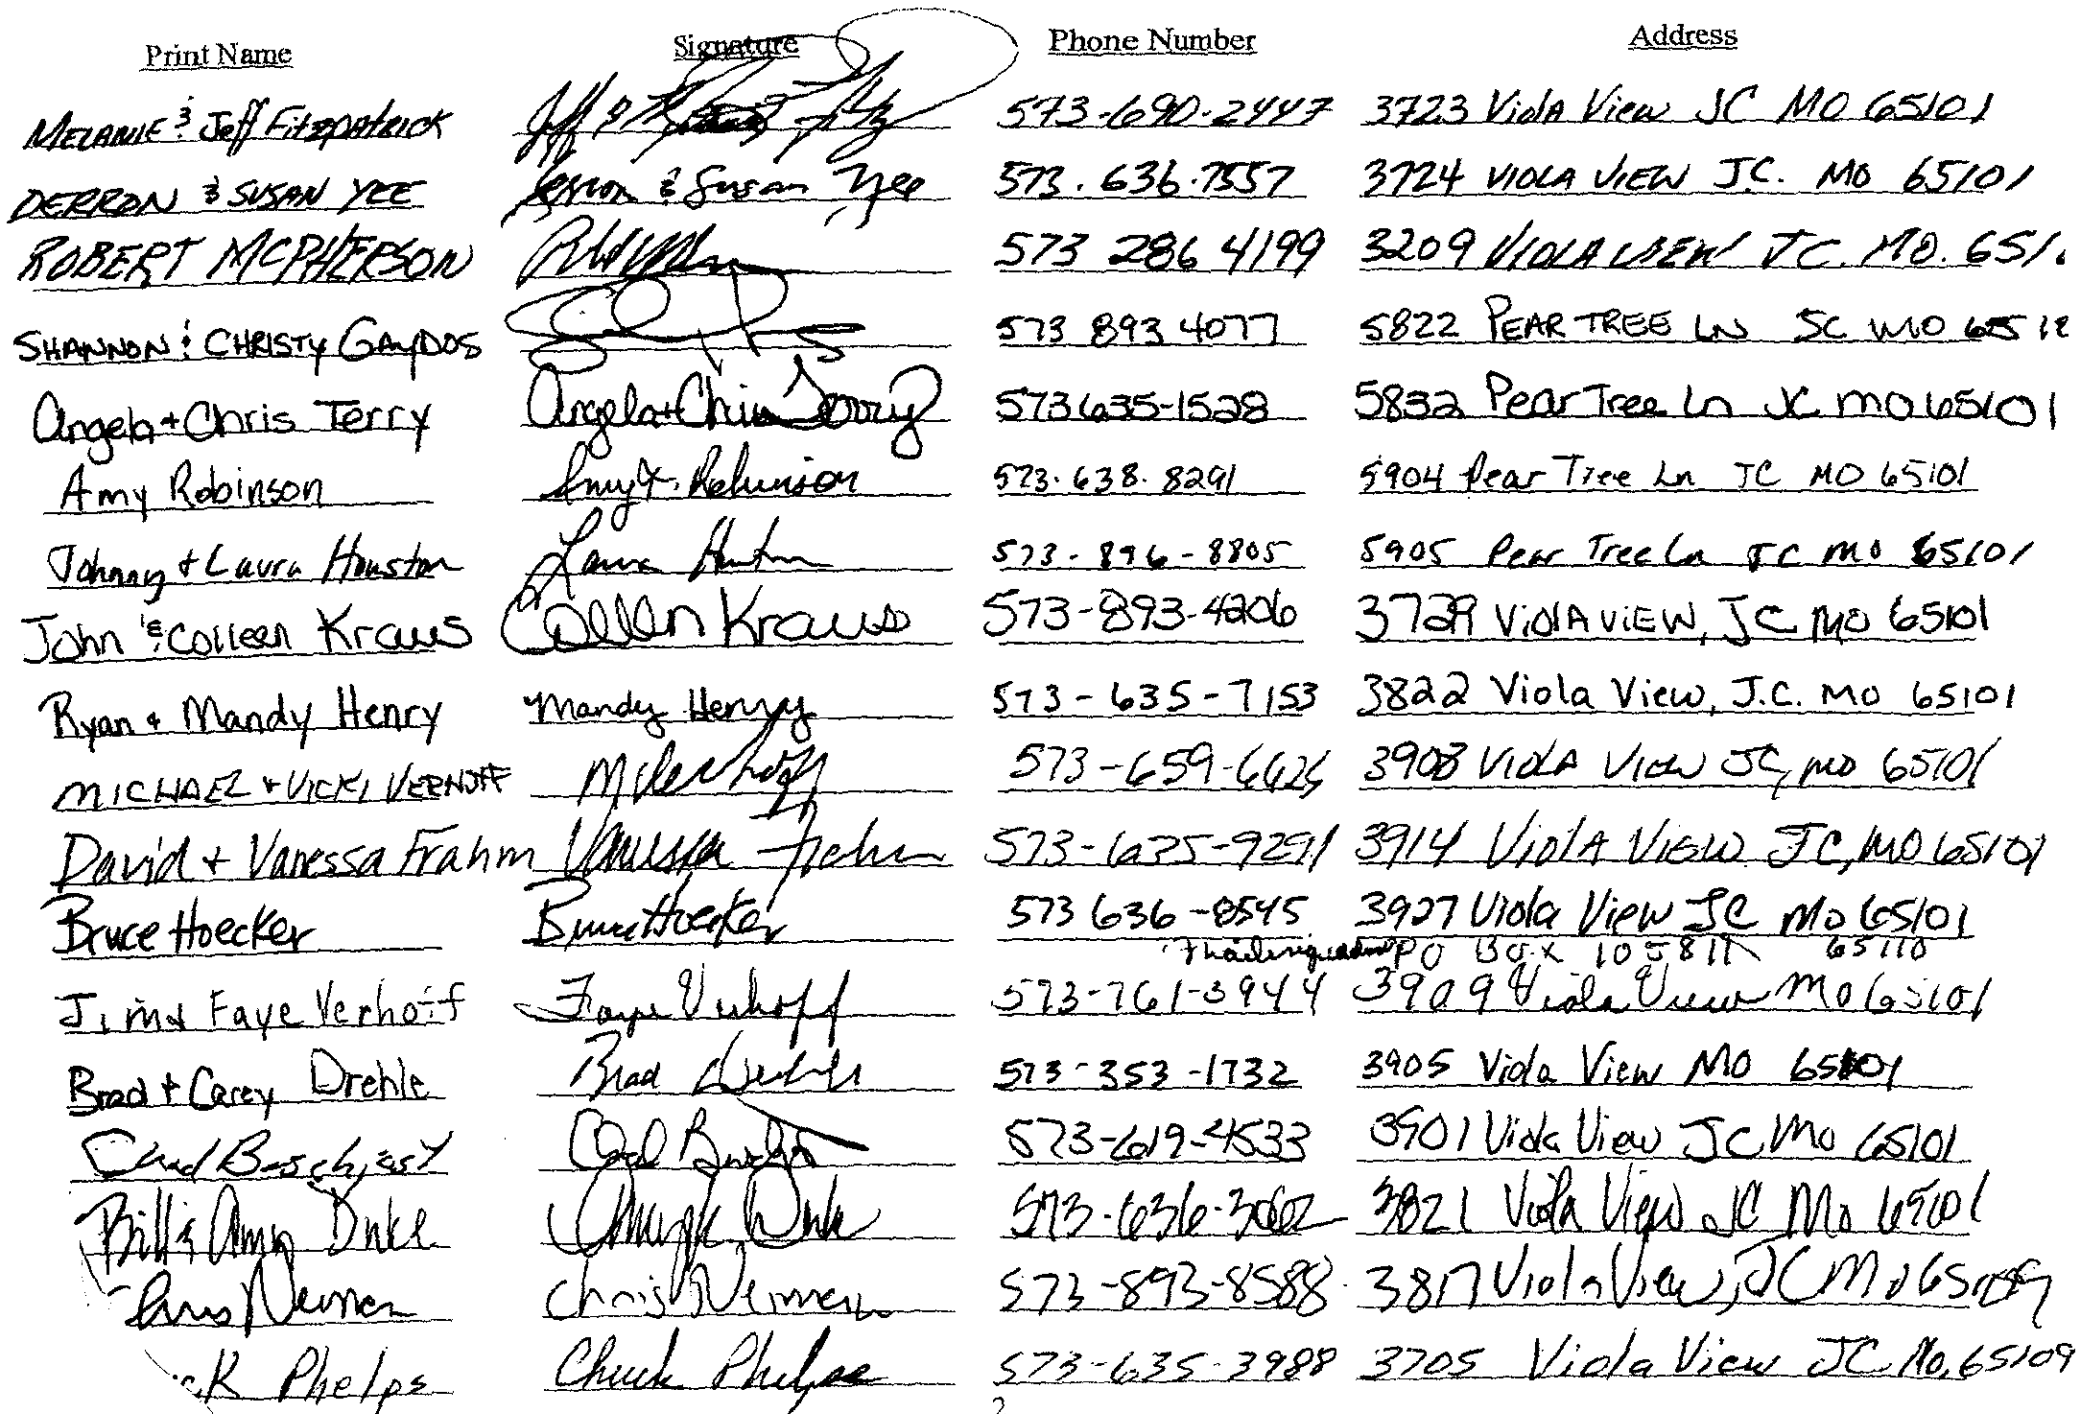 Print Name Signature Phone Number Address
MELANIE & Jeff Fitzpatrick 573-690-2447 3723 Viola View JC MO 65101
DERRON & SUSAN YEE Derron & Susan Yee 573.636.7557 3724 VIOLA VIEW J.C. MO 65101
ROBERT MCPHERSON 573 286 4199 3209 VIOLA VIEW JC. MO.
SHANNON & CHRISTY GAYDOS 573 893 4077 5822 PEAR TREE LN JC MO
Angela + Chris Terry Angela + Chris Terry 573 635-1528 5832 Pear Tree Ln JC MO 65101
Amy Robinson Amy Robinson 573.638.8291 5904 Pear Tree Ln JC MO 65101
Johnny + Laura Houston Laura Houston 573-896-8805 5905 Pear Tree Ln JC MO 65101
John & Colleen Kraus Colleen Kraus 573-893-4206 3729 VIOLA VIEW, JC MO 65101
Ryan + Mandy Henry Mandy Henry 573-635-7153 3822 Viola View, J.C. MO 65101
MICHAEL + VICKI VERHOFF M Verhoff 573-659- 3908 VIOLA VIEW JC, MO 65101
David + Vanessa Frahm Vanessa Frahm 573-635-9291 3914 VIOLA VIEW JC, MO 65101
Bruce Hoecker Bruce Hoecker 573 636-8545 3927 Viola View JC MO 65101
PO Box 65110
Jim & Faye Verhoff Faye Verhoff 573-761-3944 3909 Viola View Mo 65101
Brad + Carey Drehle Brad Drehle 573-353-1732 3905 Viola View MO 65101
Chad 573-619-4533 3901 Viola View JC MO 65101
Bill & Amy Duke Duke 573-636-3062 3821 Viola View JC Mo 65101
Chris 573-893-8588 3817 Viola View, JC Mo
Phelps Chuck Phelps 573-635-3988 3705 Viola View JC Mo, 65109